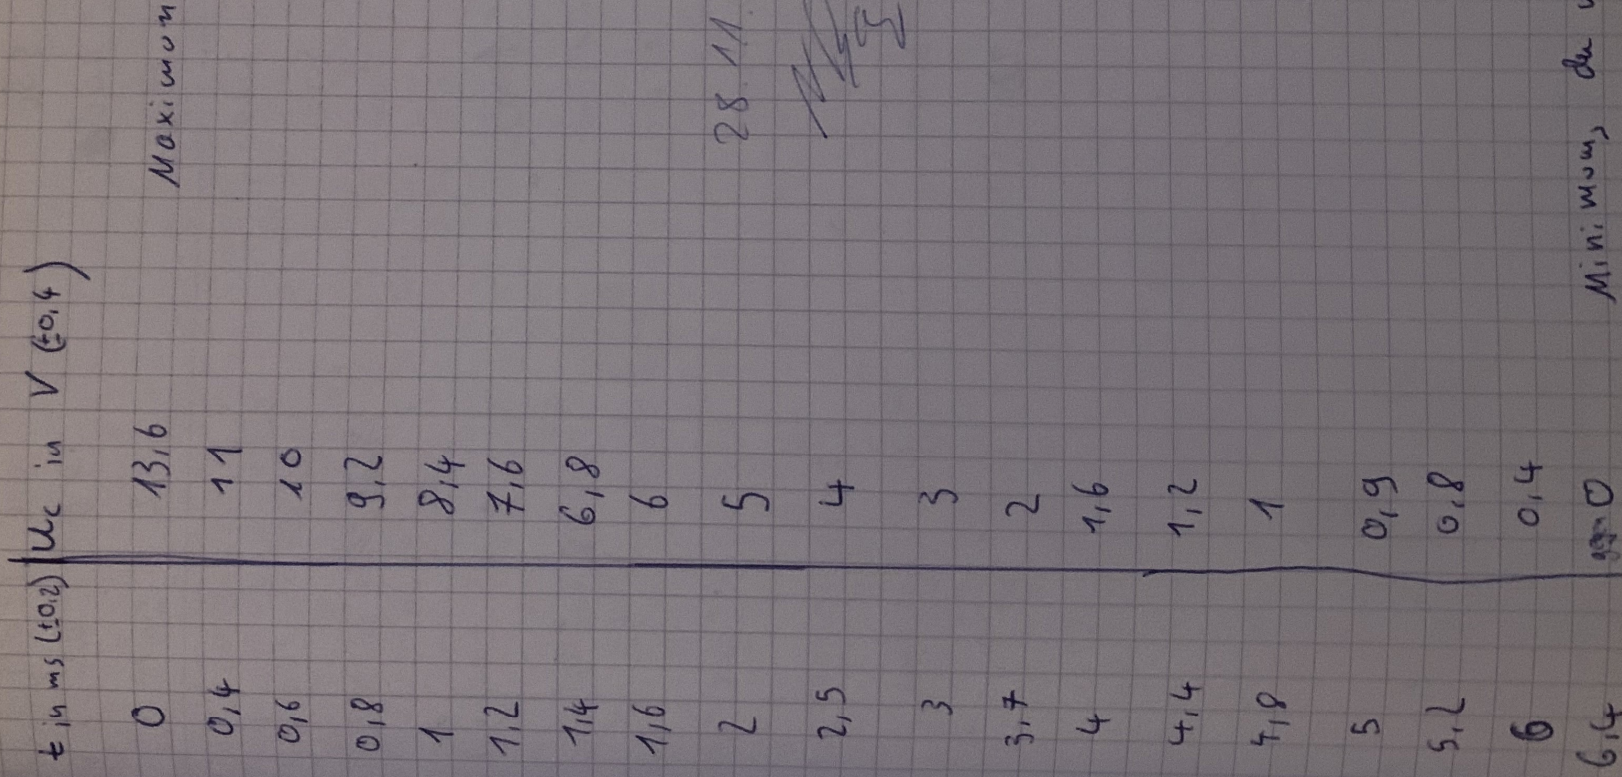 t in ms (±0,2) Uc in V (±0,4)
0 13,6 Maximum
0,4 11
0,6 10
0,8 9,2
1 8,4
1,2 7,6
1,4 6,8
1,6 6
2 5 28.11.
2,5 4
3 3
3,7 2
4 1,6
4,4 1,2
4,8 1
5 0,9
5,2 0,8
6 0,4
6,4 0 Minimum,